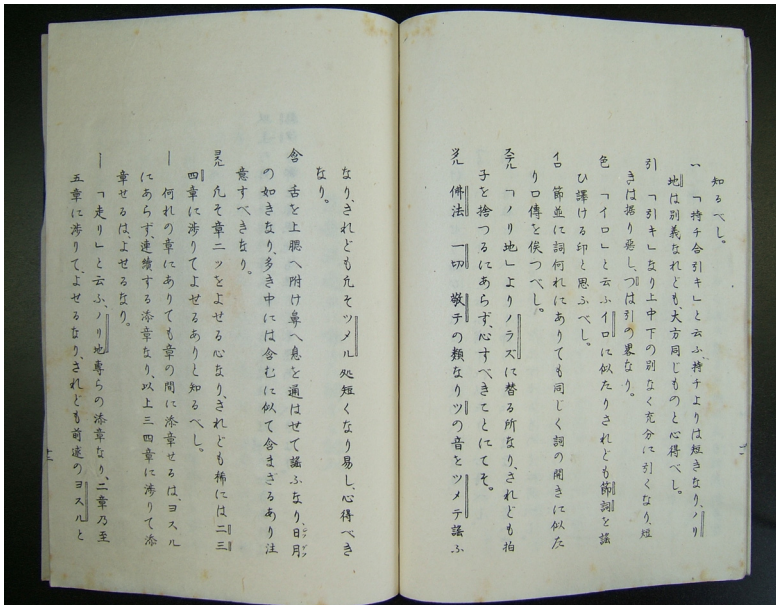 知るべし。
「持チ合引キ」と云ふ、持チよりは短きなり、ノリ
地は別義なれども、大方同じものと心得べし。
引 「引キ」なり上中下の別なく充分に引くなり、短
きは据り惡し、つは引の畧なり。
色 「イロ」と云ふイロに似たりされども節詞を謠
ひ譯ける印と思ふべし。
イロ 節並に詞何れにありても同じく詞の開きに似た
り口傳を俟つべし。
「ノリ地」よりノラズに替る所なり、されども拍
子を捨つるにあらず、心すべきことにてそ。
佛法 一切 敬テの類なりツの音をツメテ謠ふ
なり、されども凡そツメル処短くなり易し、心得べき
なり。
含 舌を上腮へ附け鼻へ息を通はせて謠ふなり、日月
の如きなり、多き中には含むに似て含まざるあり注
意すべきなり。
凡そ章二ッをよせる心なり、されども稀には二三
四章に渉りてよせるありと知るべし。
一 何れの章にありても章の間に添章せるは、ヨスル
にあらず、連續する添章なり、以上三四章に渉りて添
章せるは、よせるなり。
一 「走り」と云ふ、ノリ地專らの添章なり、二章乃至
五章に渉りて、よせるなり、されども前述のヨスルと